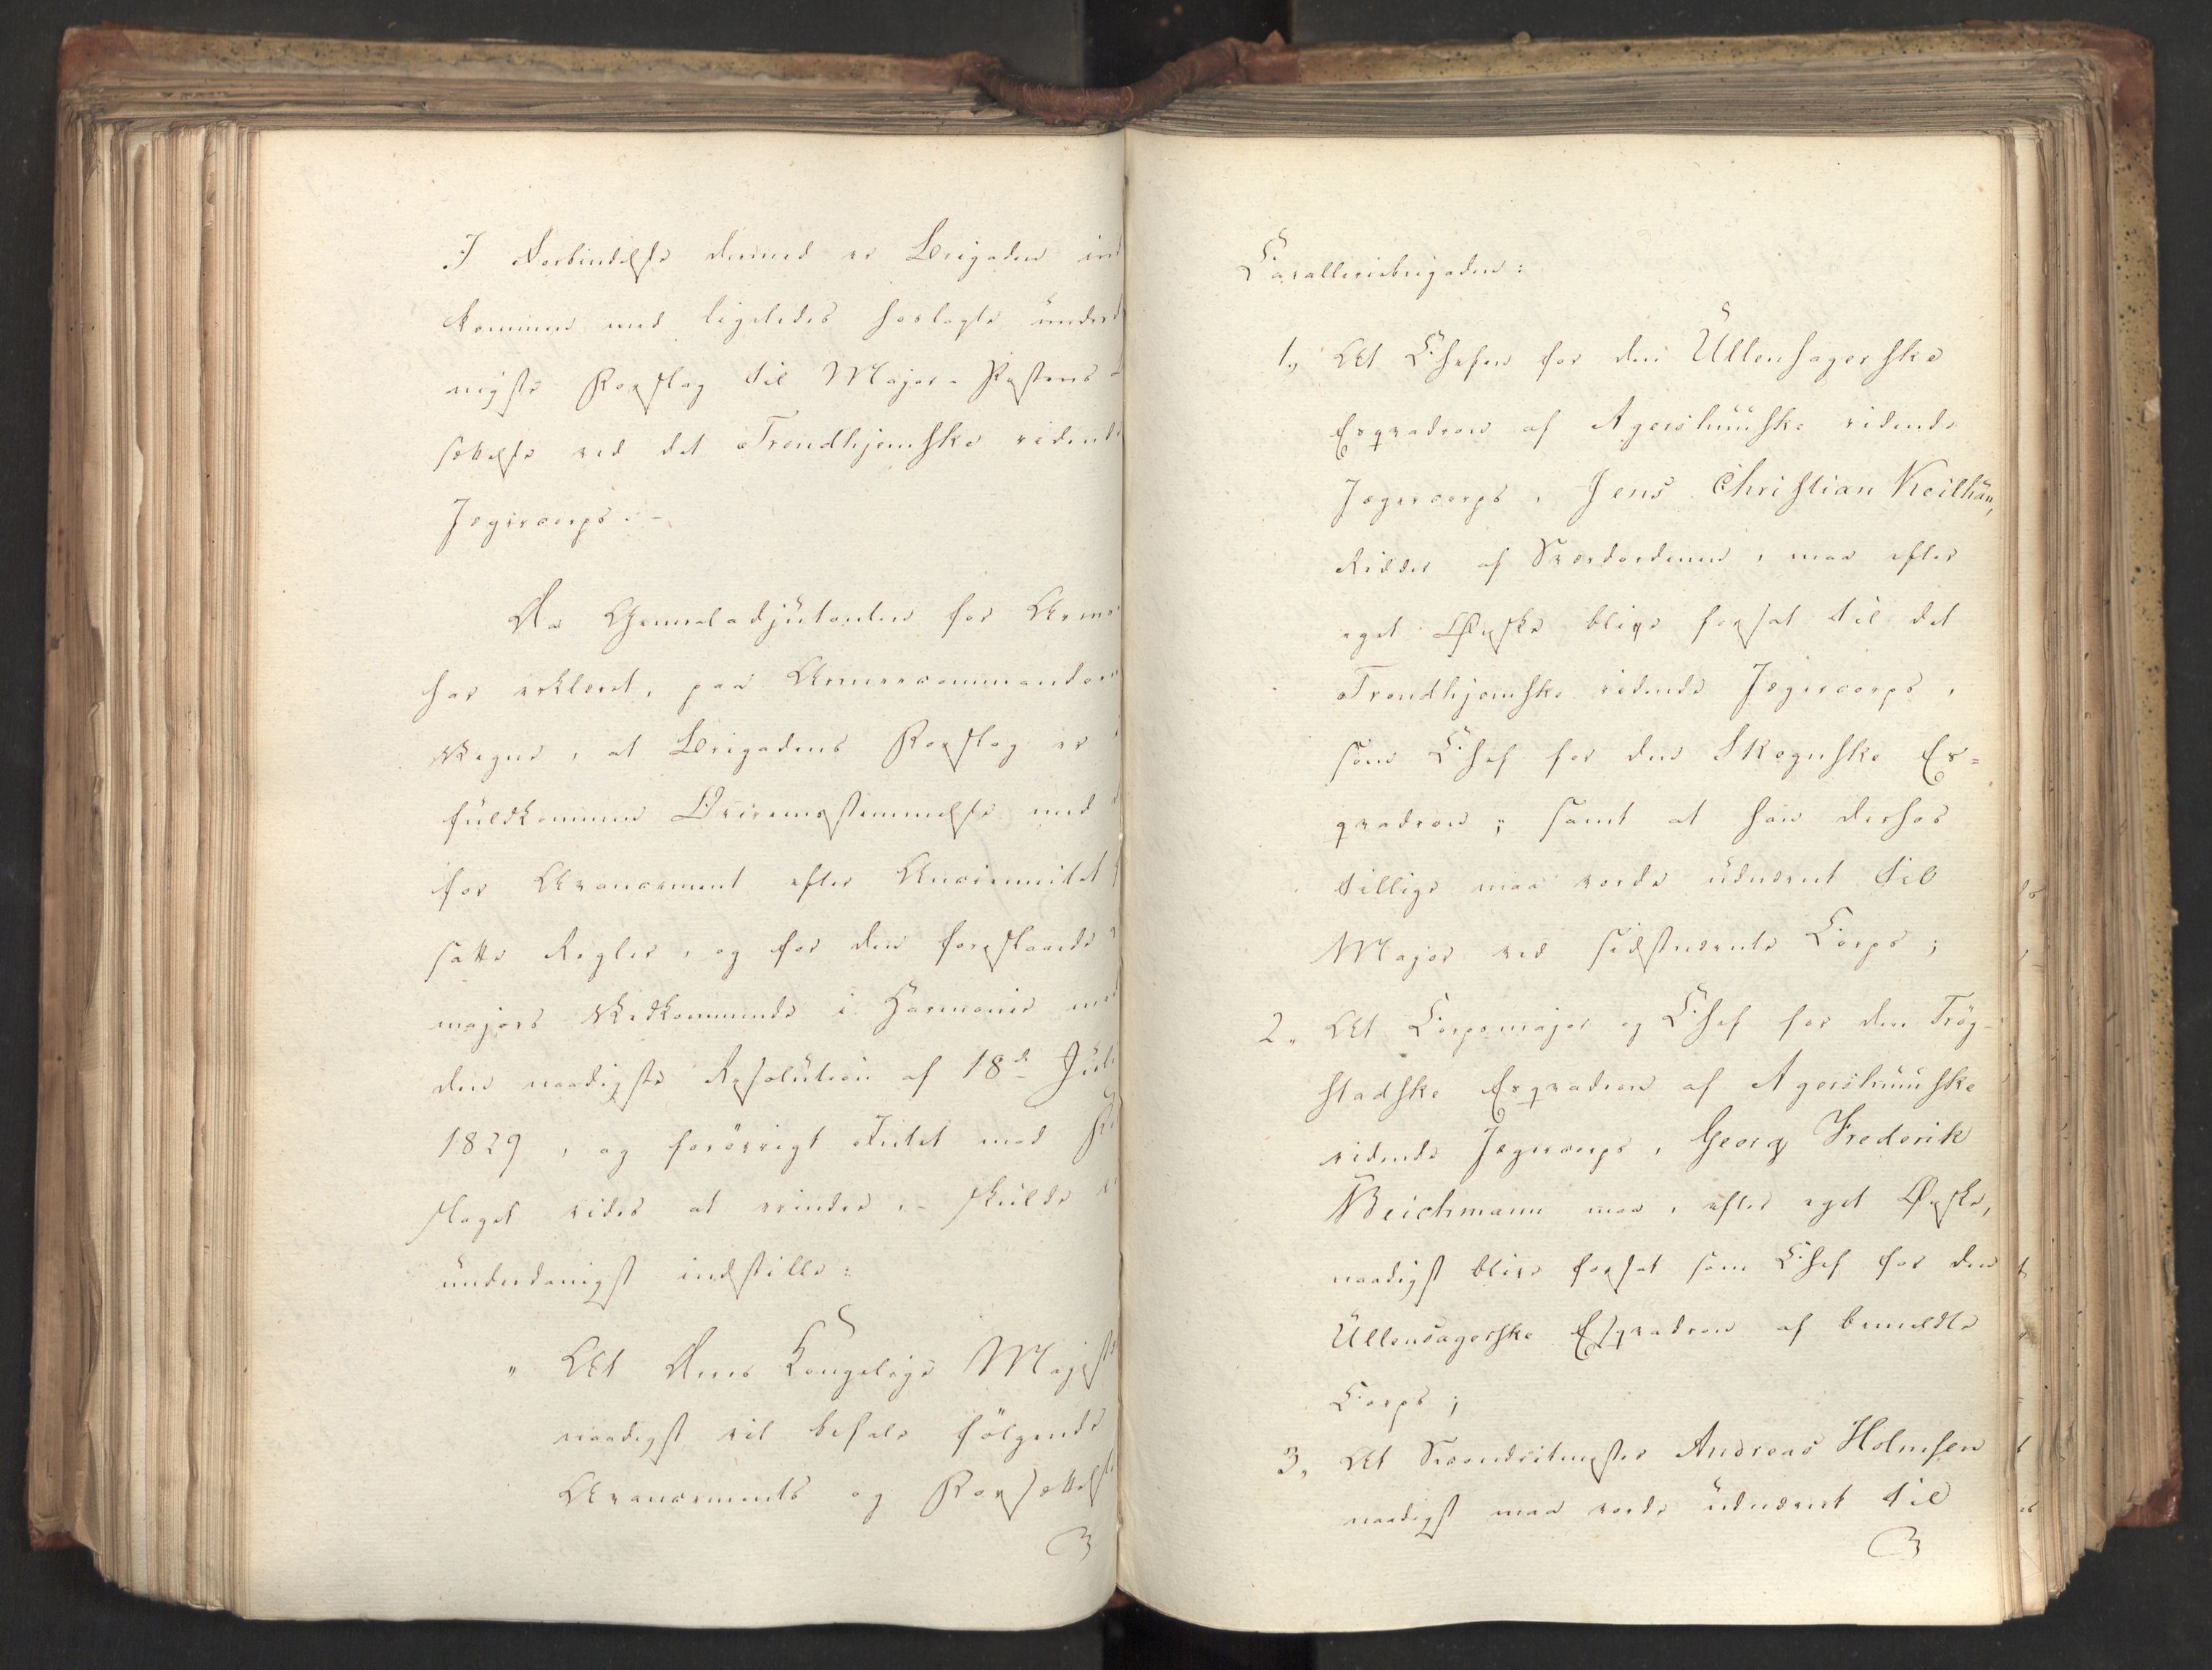 I Forbindelse dermed er Brigaden ind
kommen med ligeledes hoslagte underd
nigste Forslag til Major-Postens
sættelse ved det Trondhjemske ridend
Jægercorps. -
Da Generaladjutanten for Arme
har erklæret, paa Armeecommandoe
Vegne, at Brigadens Forslag er i
fuldkommen Overensstemmelse med
for Avancement efter Anciennitet f
satte Regler, og for den foreslaaede
majors Vedkommende i Harmonie med
den naadigste Resolution af 18de Juli
1829, og forövrigt Intet mod Fo
slaget vides at erindre, - skulde
underdanigst indstille:
" At Deres Kongelige Majestæ
naadigst vil befale fölgende
Avancements og Forsættels
Cavalleriebrigaden:
1, At Chefen for den Ullensagerske
Esqvadron af Agershuuske ridende
Jægercorps, Jens Christian Keilhau,
Ridder af Sværdordenen, maa efter
eget Ønske blive forsat til det
Trondhjemske ridende Jægercorps,
som Chef for den Skognske Es=
qvadron; samt at han derhos
tillige maa vorde udnævnt til
Major ved sidstnævnte Corps;
2, At Corpsmajor og Chef for den Trög-
stadske Esqvadron af Agershuuske
ridende Jægercorps, Georg Frederik
Beichmann maa, efter eget Ønske,
naadigst blive forsat som Chef for den
Ullensagerske Esqvadron af bemeldte
Corps;
3, At Secondritmester Andreas Holmsen
naadigst maa vorde udnævnt til